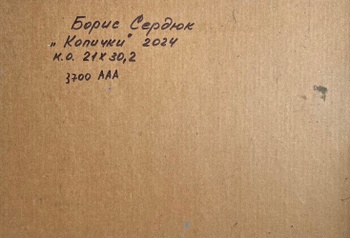 Борис Сердюк
„Копички" 2024
к.о. 21х30,2
3700 ААА